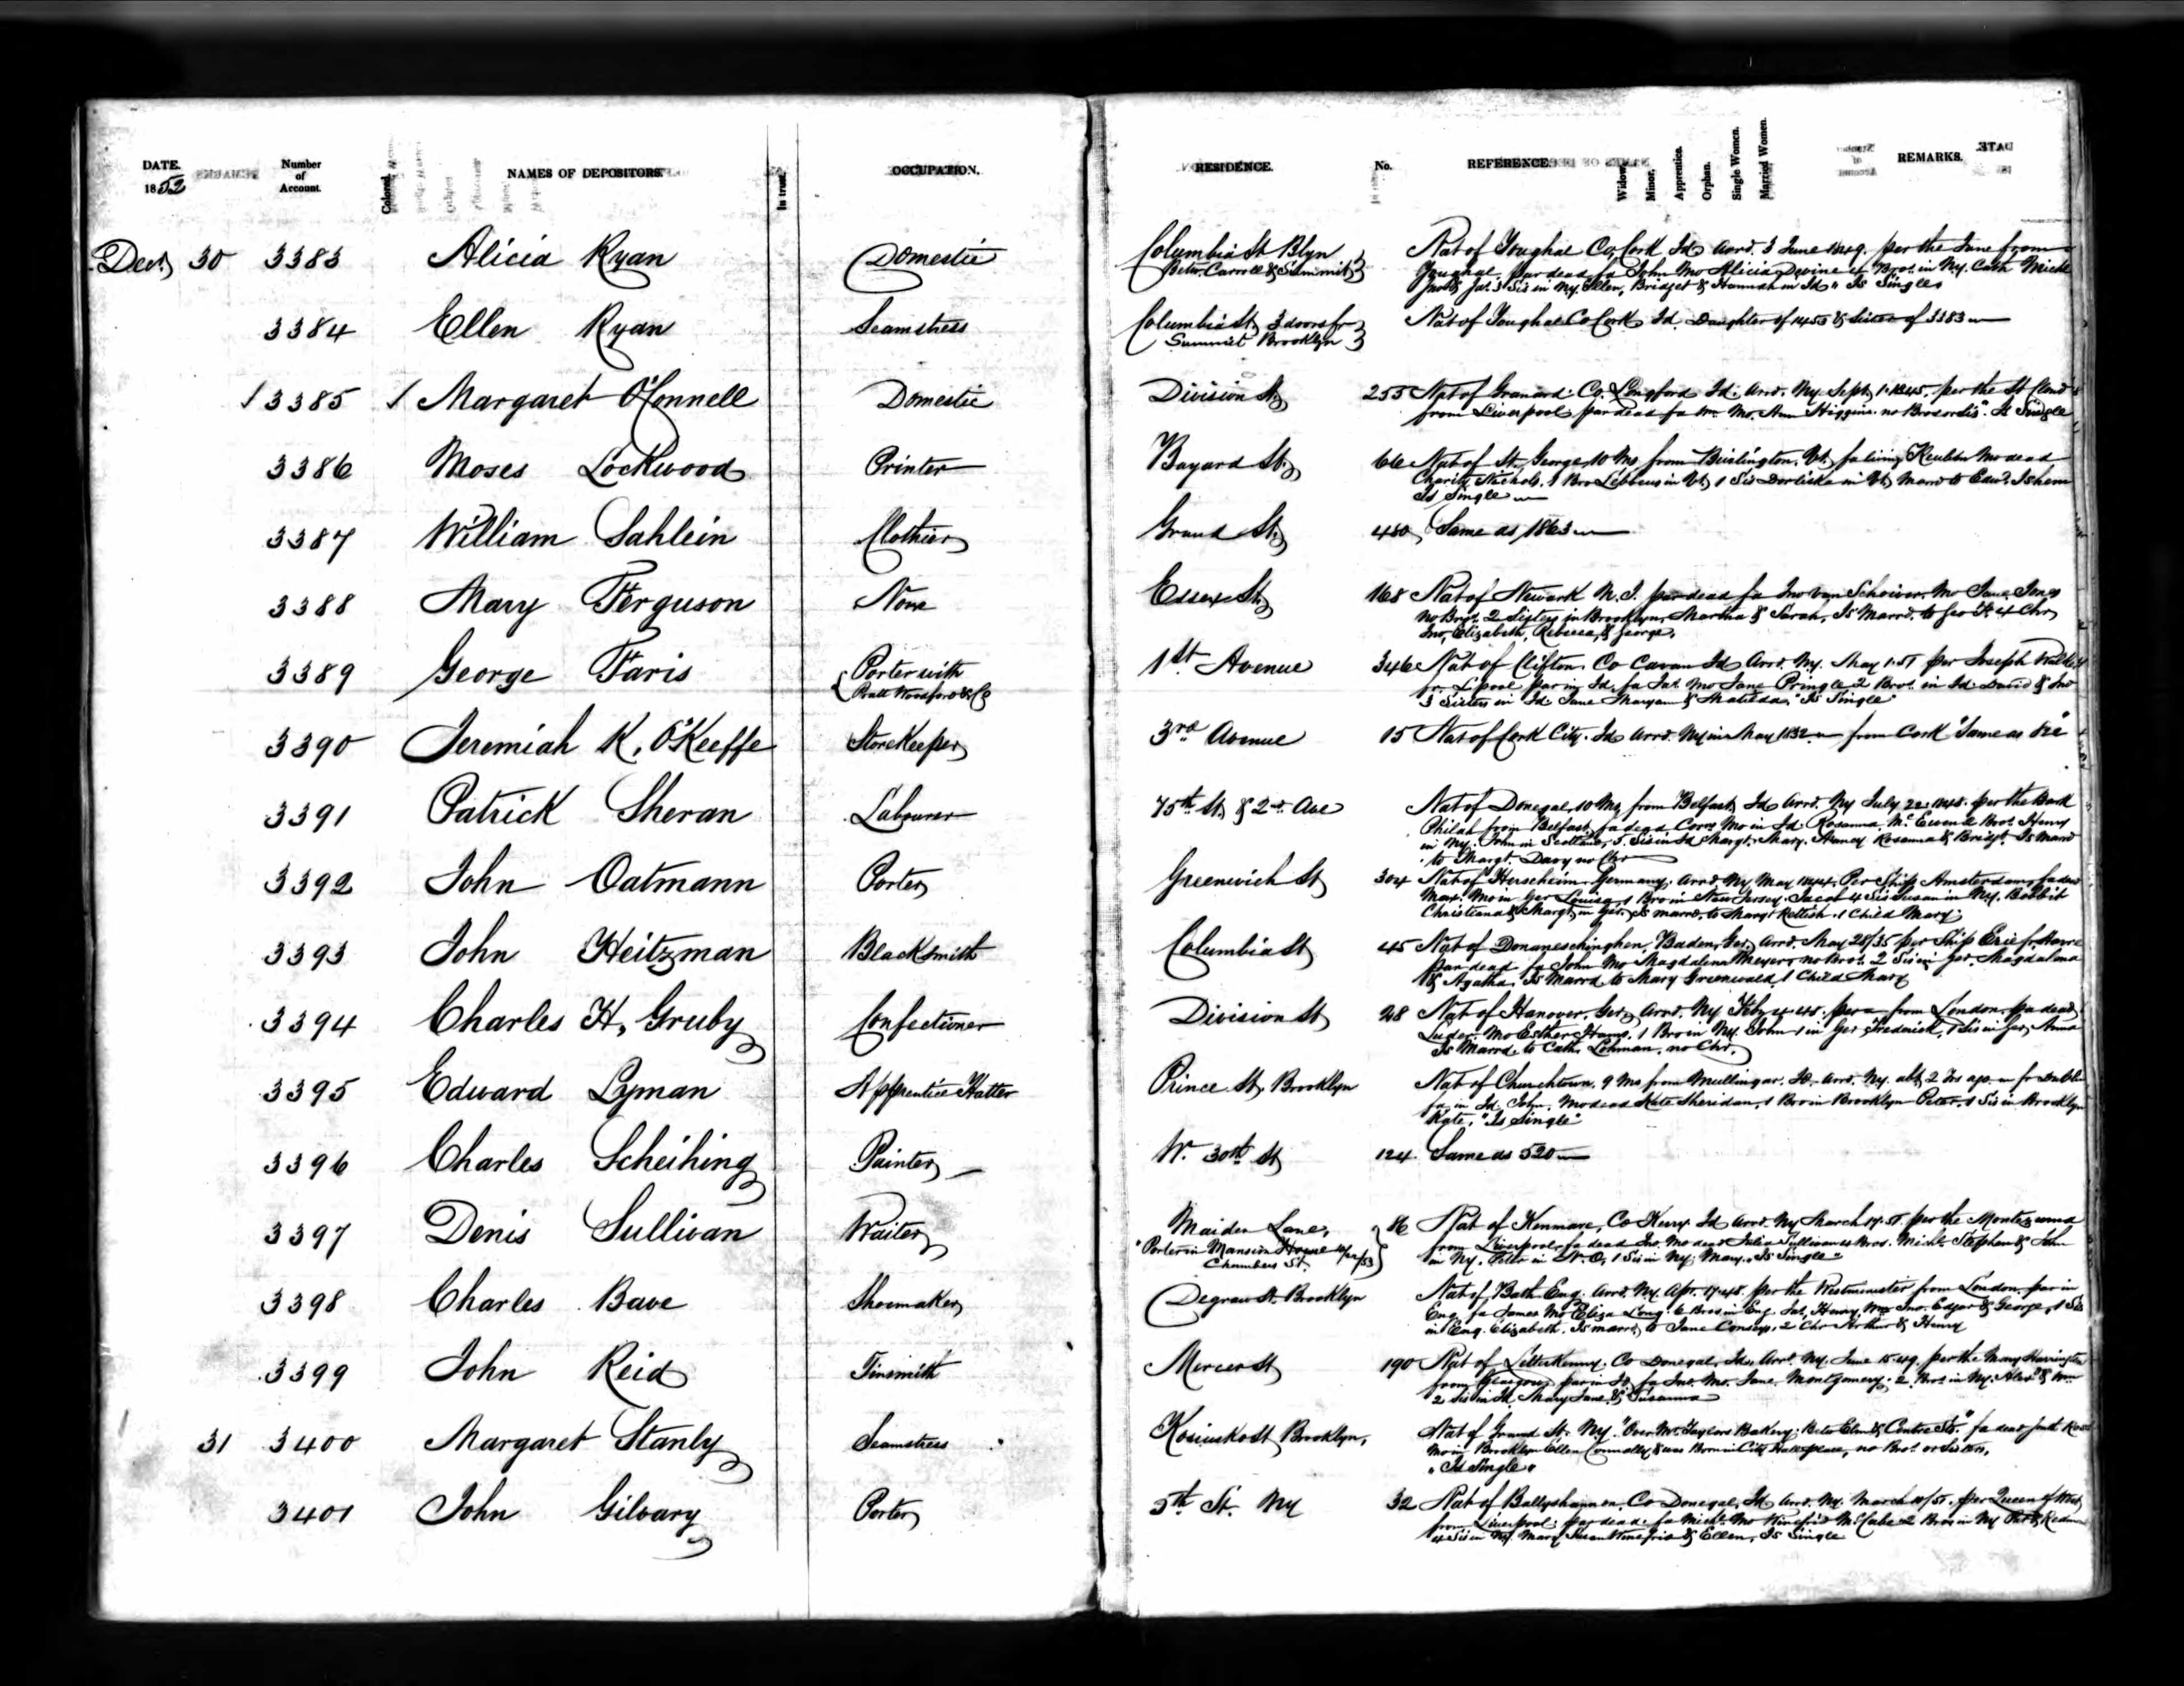 DATE. Number of Account. Colored. NAMES OF DEPOSITORS. In trust. OCCUPATION. RESIDENCE. No. REFERENCE. Widow. Minor. Apprentice. Orphan. Single Women. Married Women. REMARKS.
1852
Dec. 30 3383 Alicia Ryan Domestic Columbia St Blyn Nat of Youghal Co. Cork Id arrd. 3 June 1849. per the Jane from
betw. Carroll & Summit Youghal, par dead fa John Mo Alicia Devine 4 Bros. in Ny. Cath Michl
Jno & Jas. 3 Sis in Ny. Ellen, Bridget & Hannah in Id. Is Single
3384 Ellen Ryan Seamstress Columbia St, 3 doors fr Nat of Youghal Co Cork Id. Daughter of 1453 & Sister of 3383
Summit Brooklyn
1 3385 1 Margaret O'Connell Domestic Division St, 255 Nat of Granard Co. Longford Id. arrd. Ny Sept. 1. 1845. per the St
from Liverpool par dead fa Wm. Mo. Ann Higgins. no Bros or Sis". Is Single
3386 Moses Lockwood Printer Bayard St, 66 Nat of St. George, 10 Ms from Burlington, Vt, fa living Reuben Mo dead
Charity Nichols. 1 Bro in Vt, 1 Sis in Vt, Marrd to Edwd. Isham
Is Single
3387 William Sahlein Clothier Grand St. 480 Same as 1863
3388 Mary Ferguson None Essex St, 168 Nat of Newark N.J. par dead fa Jno Van Schoiver. Mo Jane
no Bros. 2 Sisters in Brooklyn, Martha & Sarah, Is Marrd. to Geo F. 4 Chr,
Jno, Elizabeth, Rebecca, & George.
3389 George Faris Porter with 1st Avenue 346 Nat of Clifton. Co Cavan Id Arrd. Ny. May 1. 51 per Joseph Walker
Pratt Woodford & Co fr. L'pool par in Id. fa Jas. Mo Jane Pringle 2 Bros. in Id. David & Jno
3 Sisters in Id. Jane Maryann & Matilda. "Is Single"
3390 Jeremiah K. O'Keeffe Storekeeper 3rd Avenue 15 Nat of Cork City. Id arrd. Ny in May 1832 from Cork "Same as
3391 Patrick Sheran Labourer 75th St, & 2nd Ave Nat of Donegal, 10 Ms, from Belfast, Id arrd. Ny July 22. 1848. per the Bark
Philah from Belfast, fa dead Corns. Mo in Id. Rosanna McEwen 2 Bros. Henry
in Ny. John in Scotland, 5. Sis in Id Margt. Mary. Nancy Rosanna & Bridgt. Is Marrd
to Margt. Davy no Chr
3392 John Oatmann Porter Greenwich St 304 Nat of Herscheim. Germany. arrd. Ny May 1844. Per Ship Amsterdam, fa dead
Mo in Ger Louisa, 1 Bro in New Jersey. Jacob 4 Sis Susan in Ny.
Christiana & Margt, in Ger. Is marrd. to Margt Rettish. 1 Child Mary.
3393 John Heitzman Blacksmith Columbia St 45 Nat of Donaneschinghen. Baden, Ger. arrd. May 28/35 per Ship Erie fr. Havre
par dead fa John Mo Magdalena Meyer, no Bros. 2 Sis in Ger. Magdalena
& Agatha. Is Marrd to Mary Greenwald. 1 Child Mary
3394 Charles H. Gruby Confectioner Division St, 28 Nat of Hanover, Ger, arrd. Ny Feby 4. 45. per from London, fa dead
Luder. Mo Esther 1 Bro in Ny. John 1 in Ger Frederick, 1 Sis in Ger, Anna
Is Marrd. to Cath. Lohman. no Chr.
3395 Edward Lyman Apprentice Hatter Prince St, Brooklyn Nat of Churchtown, 9 Ms from Mullingar. Id. arrd. Ny. abt, 2 Yrs ago. fr Dublin
fa. in Id. John. Mo dead Kate Sheridan, 1 Bro in Brooklyn Peter. 1 Sis in Brooklyn
Kate. "Is Single"
3396 Charles Scheihing Painter W. 30th St 124. Same as 520
3397 Denis Sullivan Waiter Maiden Lane, 86 Nat of Kenmare, Co Kerry Id arrd. Ny March 17. 51. per the Montezuma
"Porter in Mansion House from Liverpool, fa dead Jno. Mo dead Julia Sullivan 4 Bros. Michl. Stephen & John
Chambers St. in Ny. Peter in N. O, 1 Sis in Ny Mary. Is Single"
3398 Charles Bave Shoemaker Degraw St, Brooklyn Nat of Bath Eng. arrd. Ny. Apr. 17. 48. per the Westminster from London, par in
Eng. fa James Mo Eliza Long. 6 Bros in Eng. Jas, Henry, Wm Jno. Edgar & George, 1 Sis
in Eng. Elizabeth. Is marrd. to Jane 2 Chr Arthur & Henry
3399 John Reid Tinsmith Mercer St 190 Nat of Letterkenny. Co Donegal, Id. Arrd. Ny. June 15. 49. per the Mary Harrington
from Glasgow, par in Id. fa Jno. Mo. Jane. Montgomery. 2. Bros. in Ny. Alexr. & Wm
2 Sis in Id. Mary Jane, & Susanna
31 3400 Margaret Stanly Seamstress Kosiusko St Brooklyn, Nat of Grand St. Ny. "Over Mr. Taylors Bakery, Betw Elm & Centre Sts." fa dead
Mo in Brooklyn Ellen Connolly, & was Born in City Hall place, no Bros. or Sisters,
"Is Single"
3401 John Gilvary Porter 5th St. Ny 32 Nat of Ballyshannon, Co Donegal, Id. arrd. Ny. March 10/51. per Queen of West
from Liverpool. par dead. fa Michl. Mo Winefrid McCabe 2 Bros in Ny
4 Sis in Ny. Mary Susan Winefrid & Ellen, Is Single